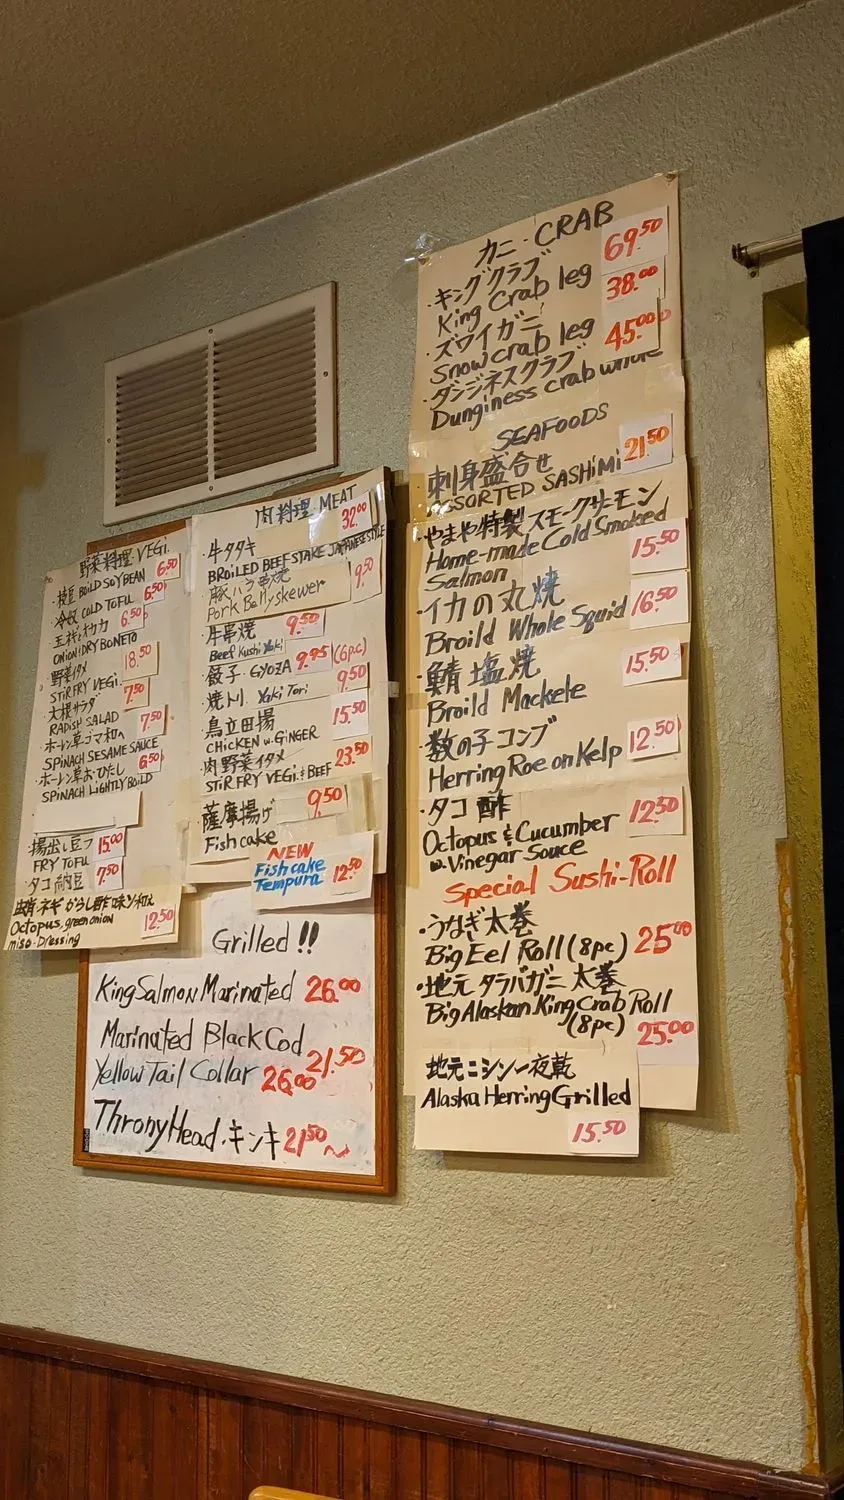 野菜料理 VEGi.
・枝豆 BOiLD SOYBEAN 6.50
・冷奴 COLD TOFU 6.50
玉ネギとオカカ 6.50
ONION & DRY BONETO
・野菜イタメ 18.50
STiR FRY VEGi.
・大根サラダ 7.50
RADiSH SALAD
・ホーレン草ゴマ和へ 7.50
SPiNACH SESAME SAUCE
・ホーレン草おひたし 6.50
SPiNACH LiGHTLY BOiLD
・揚出し豆フ 15.00
FRY TOFU
・タコ納豆 7.50
ネギ からし酢味ソ和え
Octopus, green onion
miso Dressing 12.50
肉料理 MEAT
・牛タタキ 32.00
BROiLED BEEF STAKE JAPANESE STYLE
・豚バラ串焼 9.50
Pork Bellyskewer
・牛串焼 9.50
Beef Kushi Yaki
・餃子・GYOZA 9.95 (6pc)
・焼トリ Yaki Tori 9.50
・鳥立田揚 15.50
CHiCKEN w. GiNGER
・肉野菜イタメ 23.50
STiR FRY VEGi. & BEEF
・薩摩揚げ 9.50
Fish cake
NEW
Fish cake
Tempura 12.50
Grilled !!
King Salmon Marinated 26.00
Marinated Black Cod
21.50
Yellow Tail Collar 26.00
Throny Head・キンキ 21.50〜
カニ・CRAB
・キングクラブ 69.50
King Crab leg
・ズワイガニ 38.00
Snow crab leg
・ダンジネスクラブ 45.00
Dunginess crab whole
SEAFOODS
・刺身盛合せ 21.50
ASSORTED SASHiMi
・やまや特製 スモークサーモン
Home-made Cold Smoked
Salmon 15.50
・イカの丸焼
Broild Whole Squid 16.50
・鯖塩焼 15.50
Broild Mackele
・数の子コンブ 12.50
Herring Roe on Kelp
・タコ酢 12.50
Octopus & Cucumber
w. Vinegar Souce
Special Sushi-Roll
・うなぎ太巻
Big Eel Roll (8pc) 25.00
・地元タラバガニ太巻
Big Alaskan King Crab Roll
(8pc) 25.00
地元ニシン一夜乾
Alaska Herring Grilled
15.50